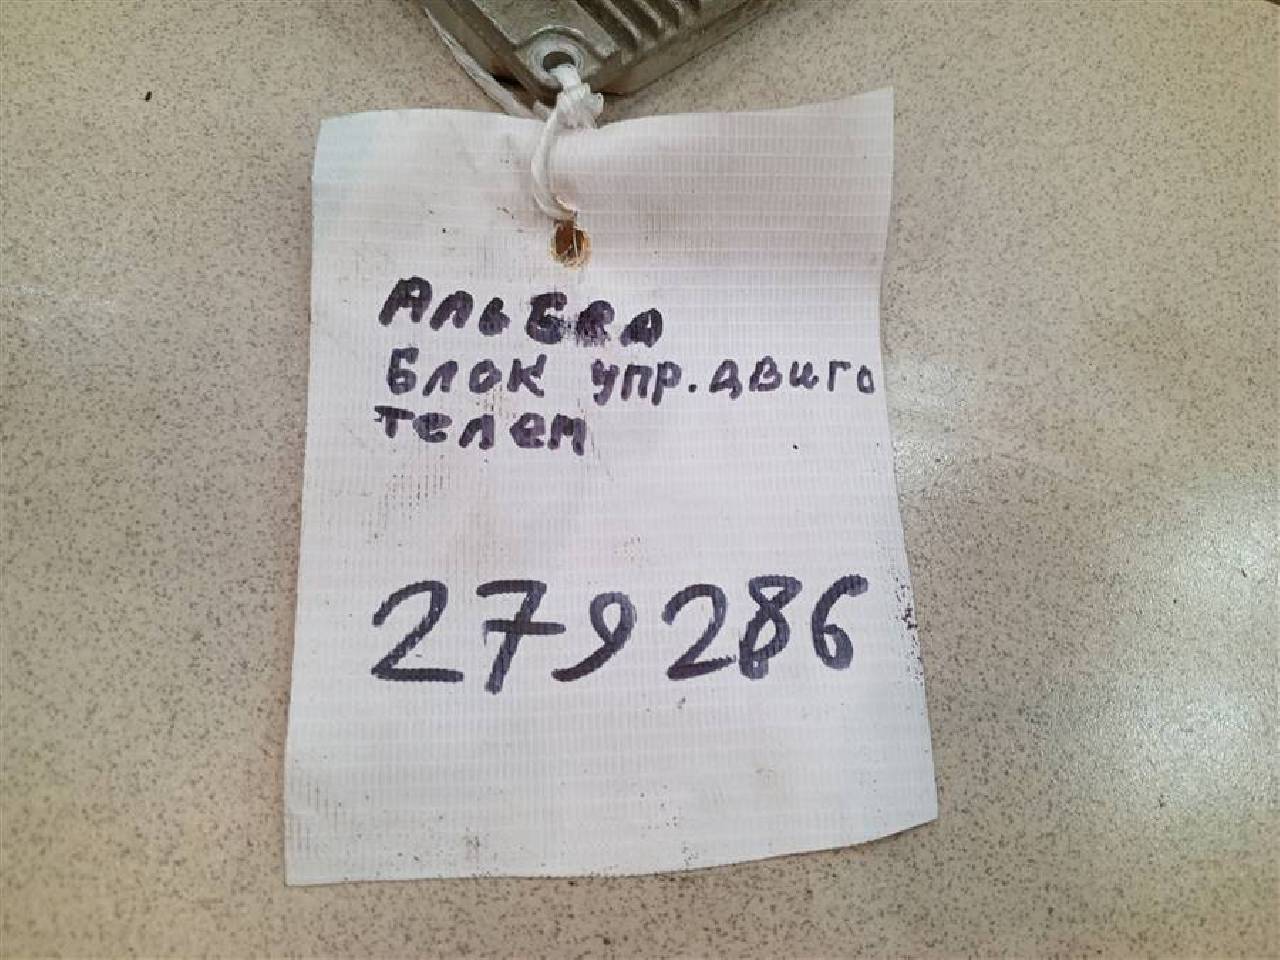 Альбеа
Блок упр. двига
телем
279286